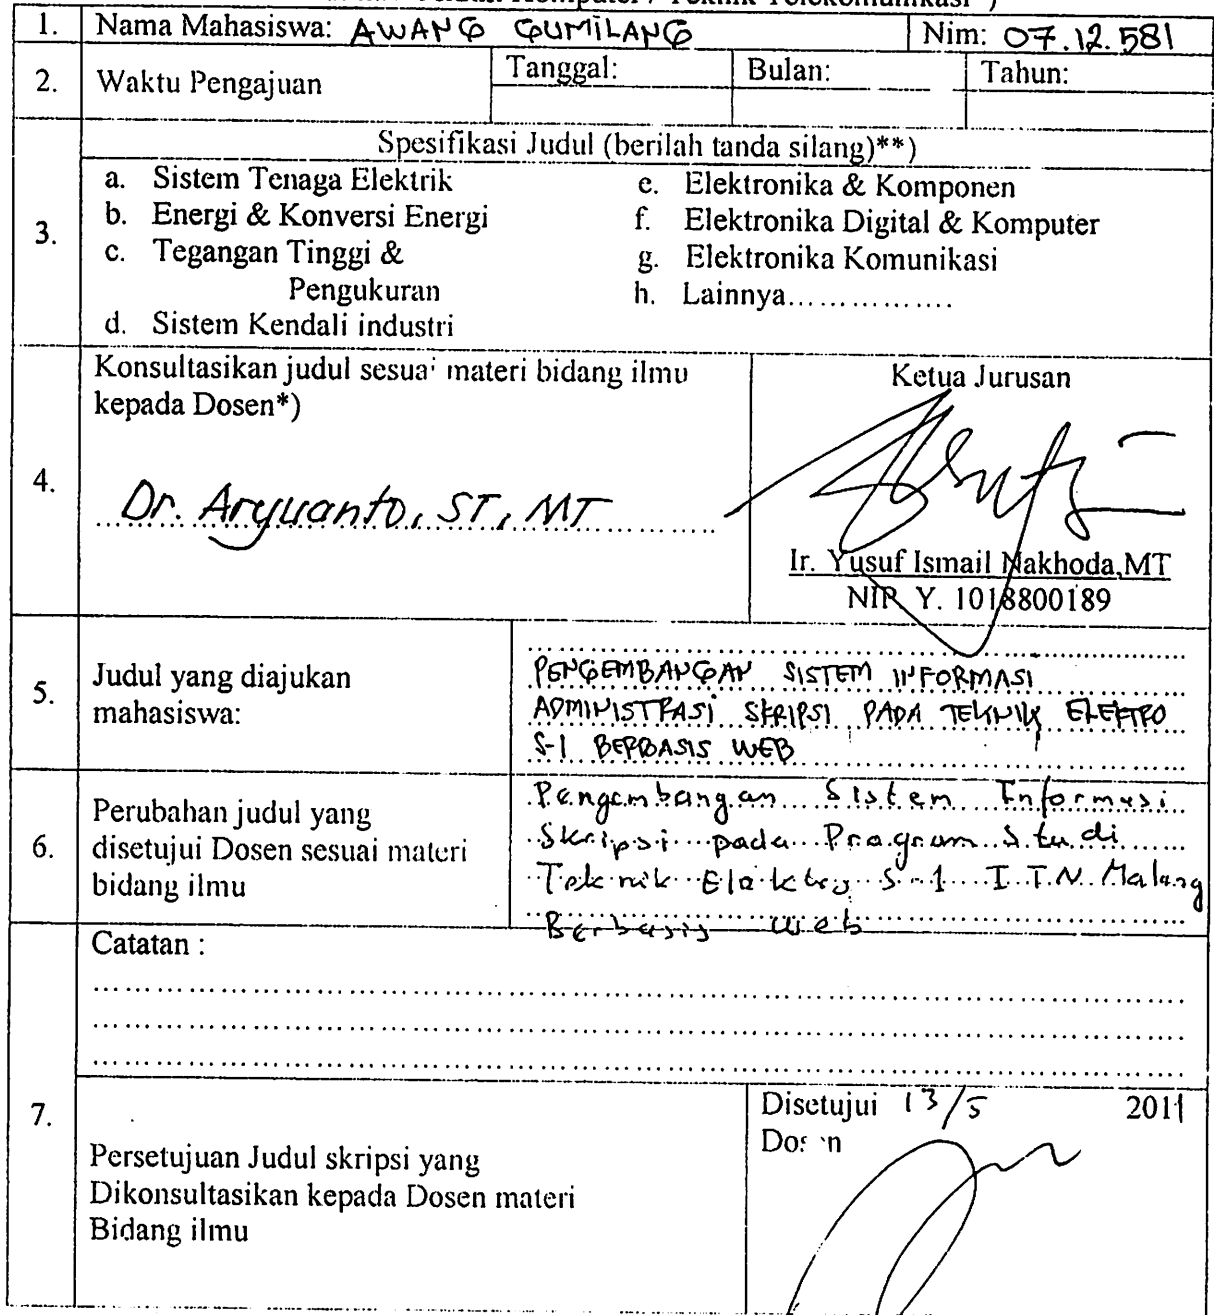 Teknik Komputer / Teknik Telekomunikasi *)
1. Nama Mahasiswa: AWANG GUMILANG Nim: 07.12.581
2. Waktu Pengajuan Tanggal: Bulan: Tahun:
3. Spesifikasi Judul (berilah tanda silang)**)
a. Sistem Tenaga Elektrik
b. Energi & Konversi Energi
c. Tegangan Tinggi &
Pengukuran
d. Sistem Kendali industri
e. Elektronika & Komponen
f. Elektronika Digital & Komputer
g. Elektronika Komunikasi
h. Lainnya................
4. Konsultasikan judul sesuai materi bidang ilmu
kepada Dosen*)
Dr. Aryuanto, ST, MT
Ketua Jurusan
Ir. Yusuf Ismail Nakhoda,MT
NIP. Y. 1018800189
5. Judul yang diajukan
mahasiswa:
PENGEMBANGAN SISTEM INFORMASI
ADMINISTRASI SKRIPSI PADA TEKNIK ELEKTRO
S-1 BERBASIS WEB
6. Perubahan judul yang
disetujui Dosen sesuai materi
bidang ilmu
Pengembangan Sistem Informasi
Skripsi pada Program Studi
Teknik Elektro S-1 ITN Malang
Berbasis Web
7. Catatan :
Persetujuan Judul skripsi yang
Dikonsultasikan kepada Dosen materi
Bidang ilmu
Disetujui 13/5 2011
Dosen